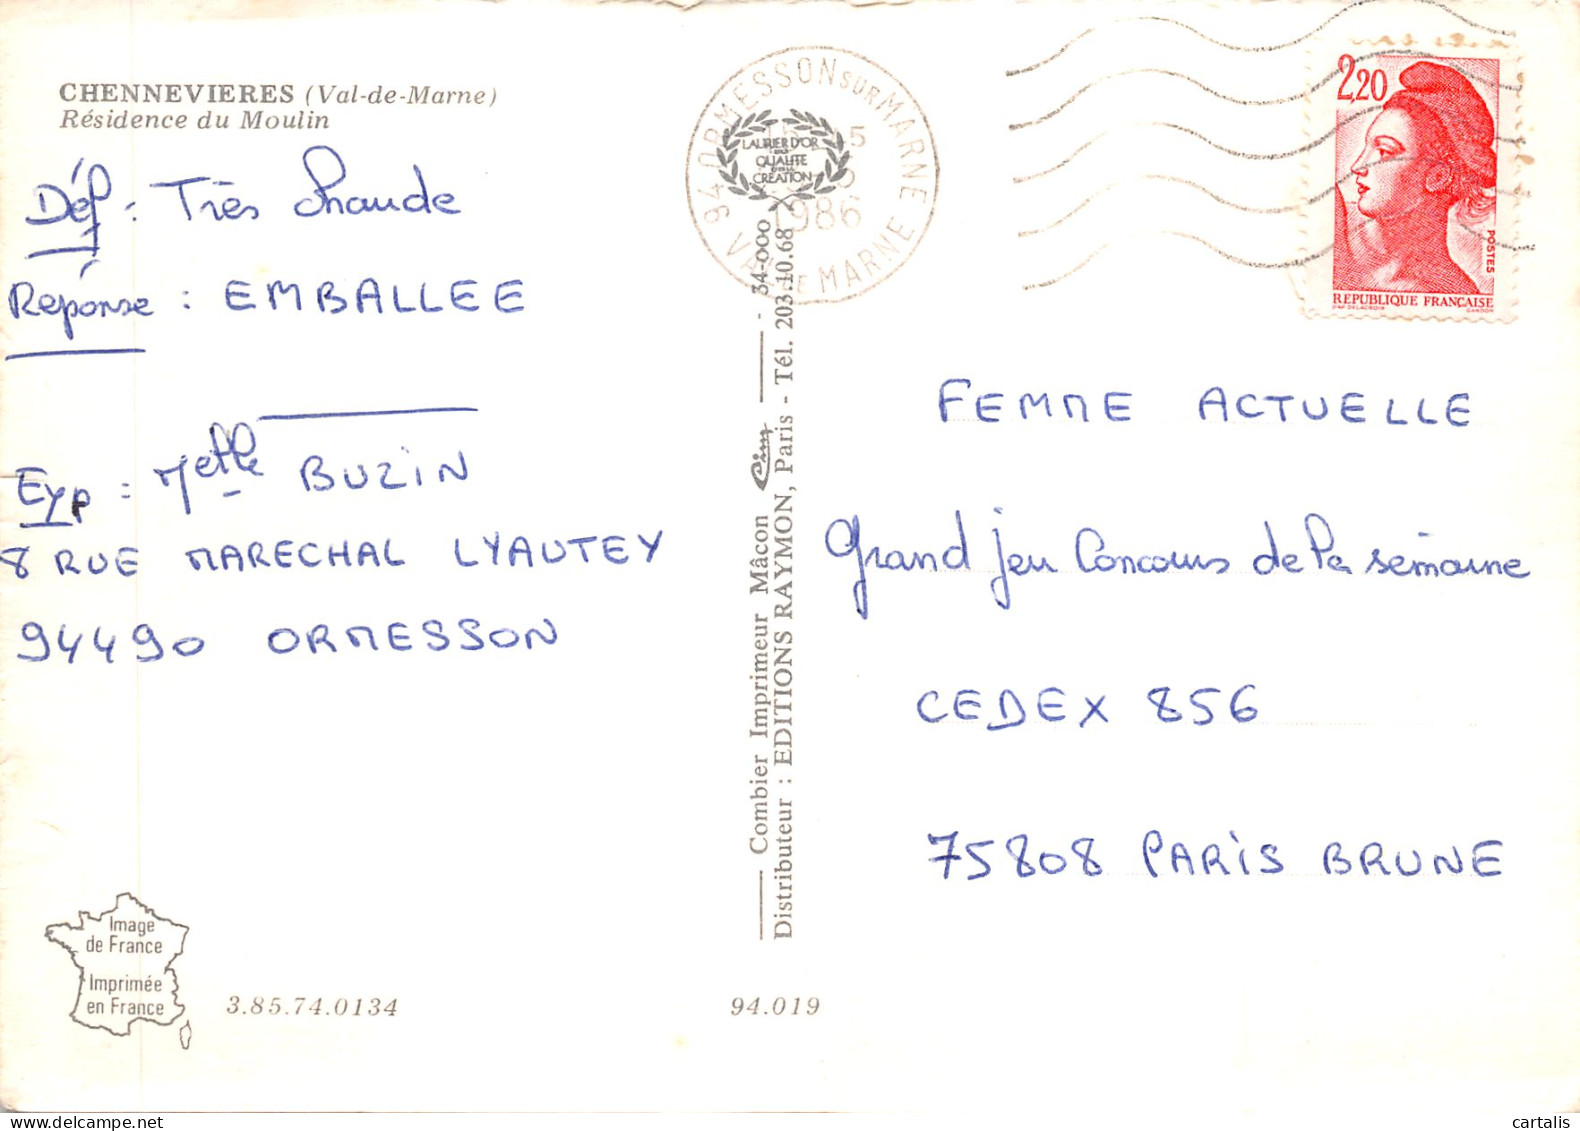 CHENNEVIERES (Val-de-Marne)
Résidence du Moulin
Déf : Très chaude
Réponse : EMBALLEE
Exp : Melle BUZIN
8 RUE MARECHAL LYAUTEY
94490 ORMESSON
Image
de France
Imprimée
en France
3.85.74.0134
94.019
Combier Imprimeur Mâcon Cim - 34-000
Distributeur : EDITIONS RAYMON, Paris - Tél. 203.10.68
94 ORMESSON SUR MARNE
VAL DE MARNE
1986
LAURIER D'OR
QUALITE
CREATION
2,20
POSTES
REPUBLIQUE FRANÇAISE
D'AP. DELACROIX GANDON
FEMME ACTUELLE
Grand Jeu Concours de la semaine
CEDEX 856
75808 PARIS BRUNE
cartalis